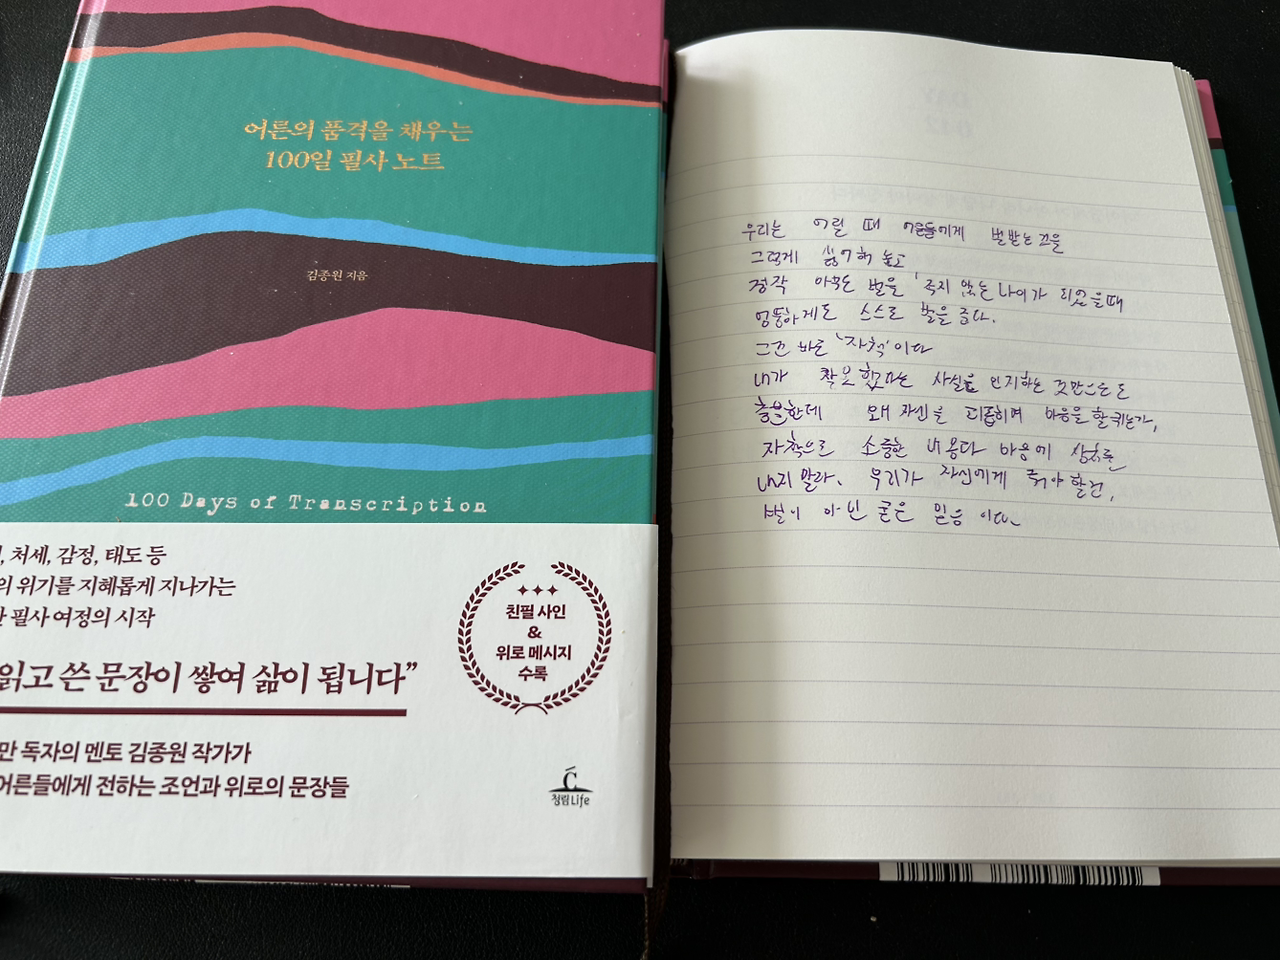 어른의 품격을 채우는
100일 필사 노트
김종원 지음
100 Days of Transcription
, 처세, 감정, 태도 등
의 위기를 지혜롭게 지나가는
필사 여정의 시작
읽고 쓴 문장이 쌓여 삶이 됩니다”
만 독자의 멘토 김종원 작가가
어른들에게 전하는 조언과 위로의 문장들
친필 사인
&
위로 메시지
수록
청림Life
우리는 어릴 때 어른들에게 벌받는 것을
그렇게 싫어해 놓고
정작 아무도 벌을 주지 않는 나이가 되었을때
엉뚱하게도 스스로 벌을 준다.
그건 바로 '자책'이다
내가 잘못 했다는 사실을 인지하는 것만으로도
충분한데 왜 자신을 괴롭히며 마음을 할퀴는가,
자책으로 소중한 내 마음에 상처를
내지 말라. 우리가 자신에게 줘야 할건,
벌이 아닌 굳은 믿음 이다.